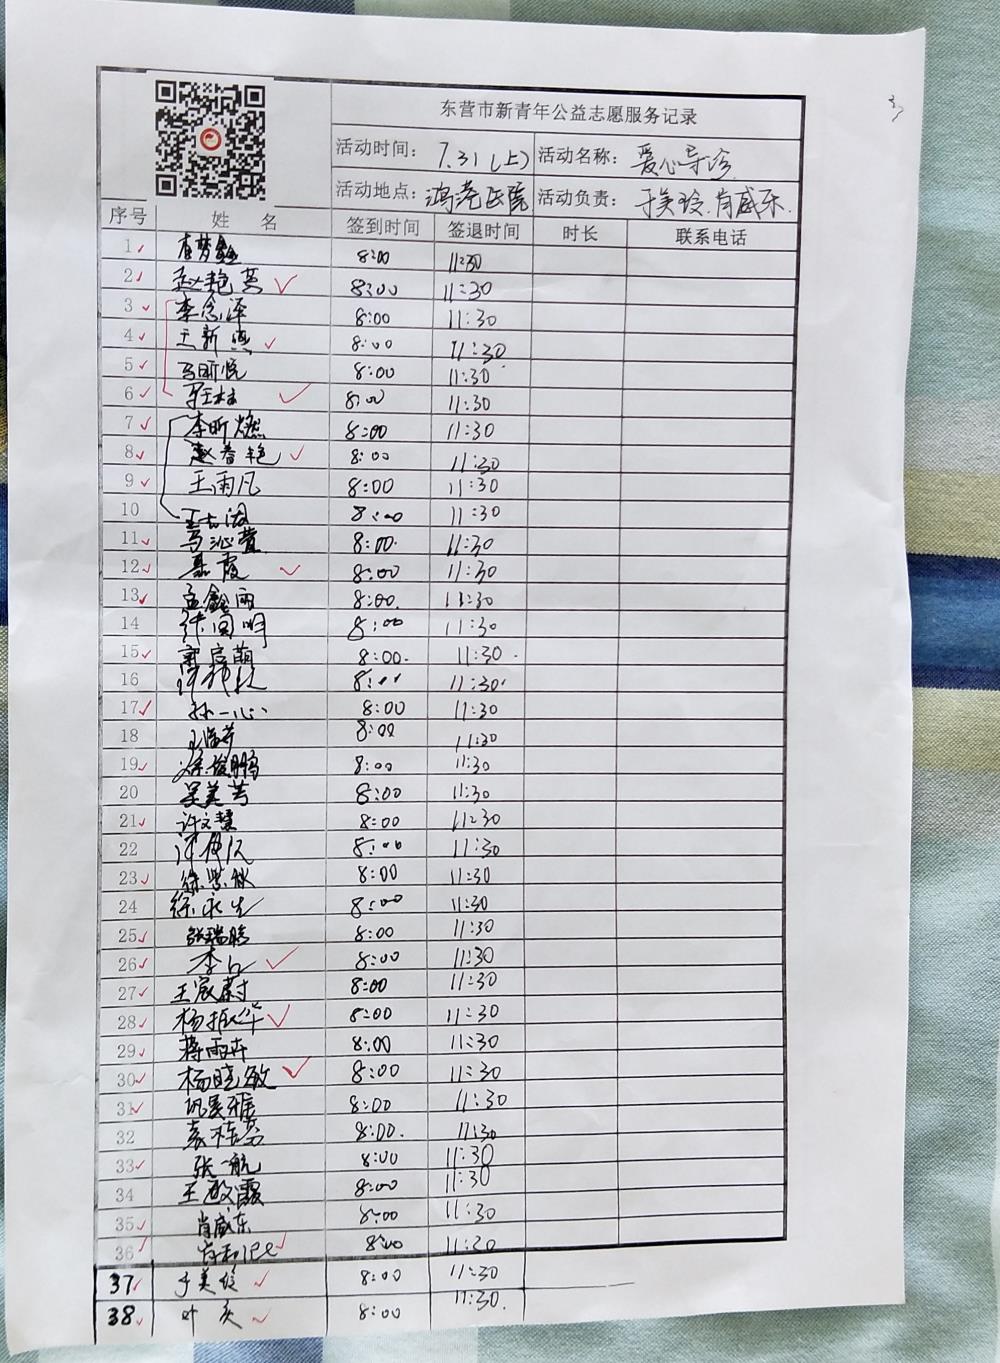 东营市新青年公益志愿服务记录
活动时间： 7.31（上） 活动名称： 爱心导诊
活动地点： 鸿港医院 活动负责： 于美玲.肖威东.
序号 姓 名 签到时间 签退时间 时长 联系电话
1 8:00 11:30
2 赵艳芳 8:00 11:30
3 李念泽 8:00 11:30
4 王新燕 8:00 11:30
5 马昕悦 8:00 11:30
6 8:00 11:30
7 李昕燃 8:00 11:30
8 赵春艳 8:00 11:30
9 王雨凡 8:00 11:30
10 8:00 11:30
11 马沁萱 8:00 11:30
12 聂霞 8:00 11:30
13 孟鑫雨 8:00 11:30
14 8:00 11:30
15 8:00 11:30
16 8:00 11:30
17 孙一心 8:00 11:30
18 8:00 11:30
19 徐俊鹏 8:00 11:30
20 吴美芳 8:00 11:30
21 许文慧 8:00 11:30
22 8:00 11:30
23 徐紫秋 8:00 11:30
24 徐永生 8:00 11:30
25 张瑞皓 8:00 11:30
26 李 8:00 11:30
27 王宸蔚 8:00 11:30
28 杨振华 8:00 11:30
29 蒋雨卉 8:00 11:30
30 杨晓敏 8:00 11:30
31 8:00 11:30
32 袁桂芬 8:00 11:30
33 张一航 8:00 11:30
34 王敬霞 8:00 11:30
35 肖威东 8:00 11:30
36 8:00 11:20
37 于美玲 8:00 11:30
38 叶 8:00 11:30